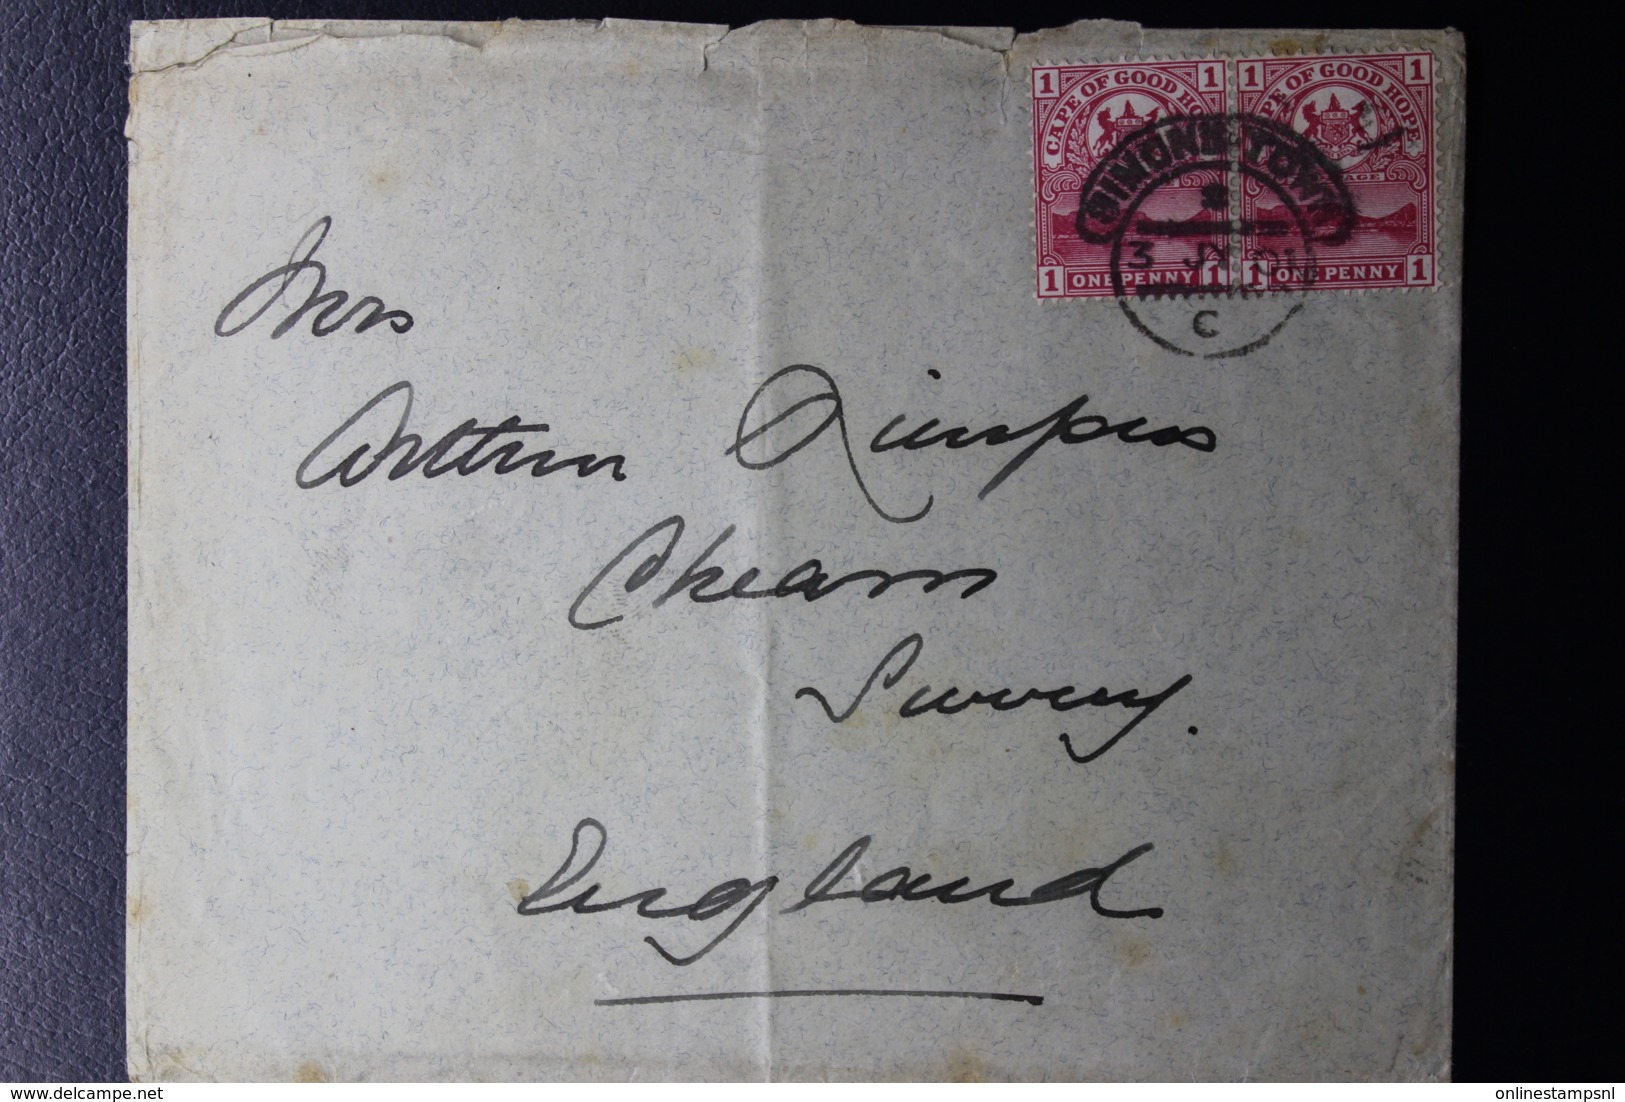 1 CAPE OF GOOD HOPE 1
1 ONE PENNY 1
1 PE OF GOOD HOPE 1
AGE
1 ONE PENNY 1
SIMONS TOWN
3 JY 01
C
Mrs
Arthur
Cheam
Surrey.
England
delcampe.net
onlinestampsnl